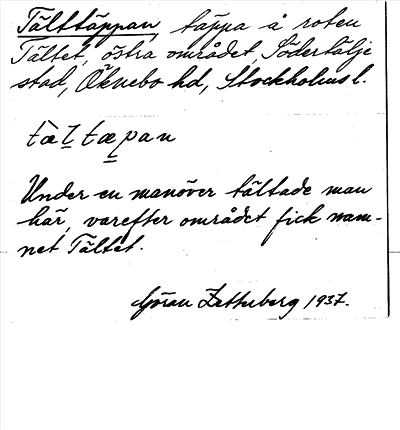 Tälttäppan, täppa å roten
Tältet, östra området, Södertälje
stad, Öknebo hd, Stockholms l.
tæ̀l̲tæp̲an
Under en manöver tältade man
här, varefter området fick nam-
net Tältet.
Göran Zetterberg 1937.